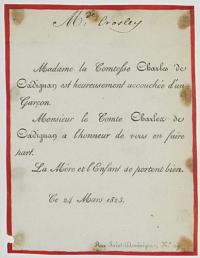 Mde Crosley
Madame la Comtesse Charles de
Cadignan est heureusement accouchée d'un
Garçon.
Monsieur le Comte Charles de
Cadignan a l'honneur de vous en faire
part.
La Mère et l'Enfant se portent bien.
Ce 24 Mars 1823.
Rue Saint-Dominique, N.º